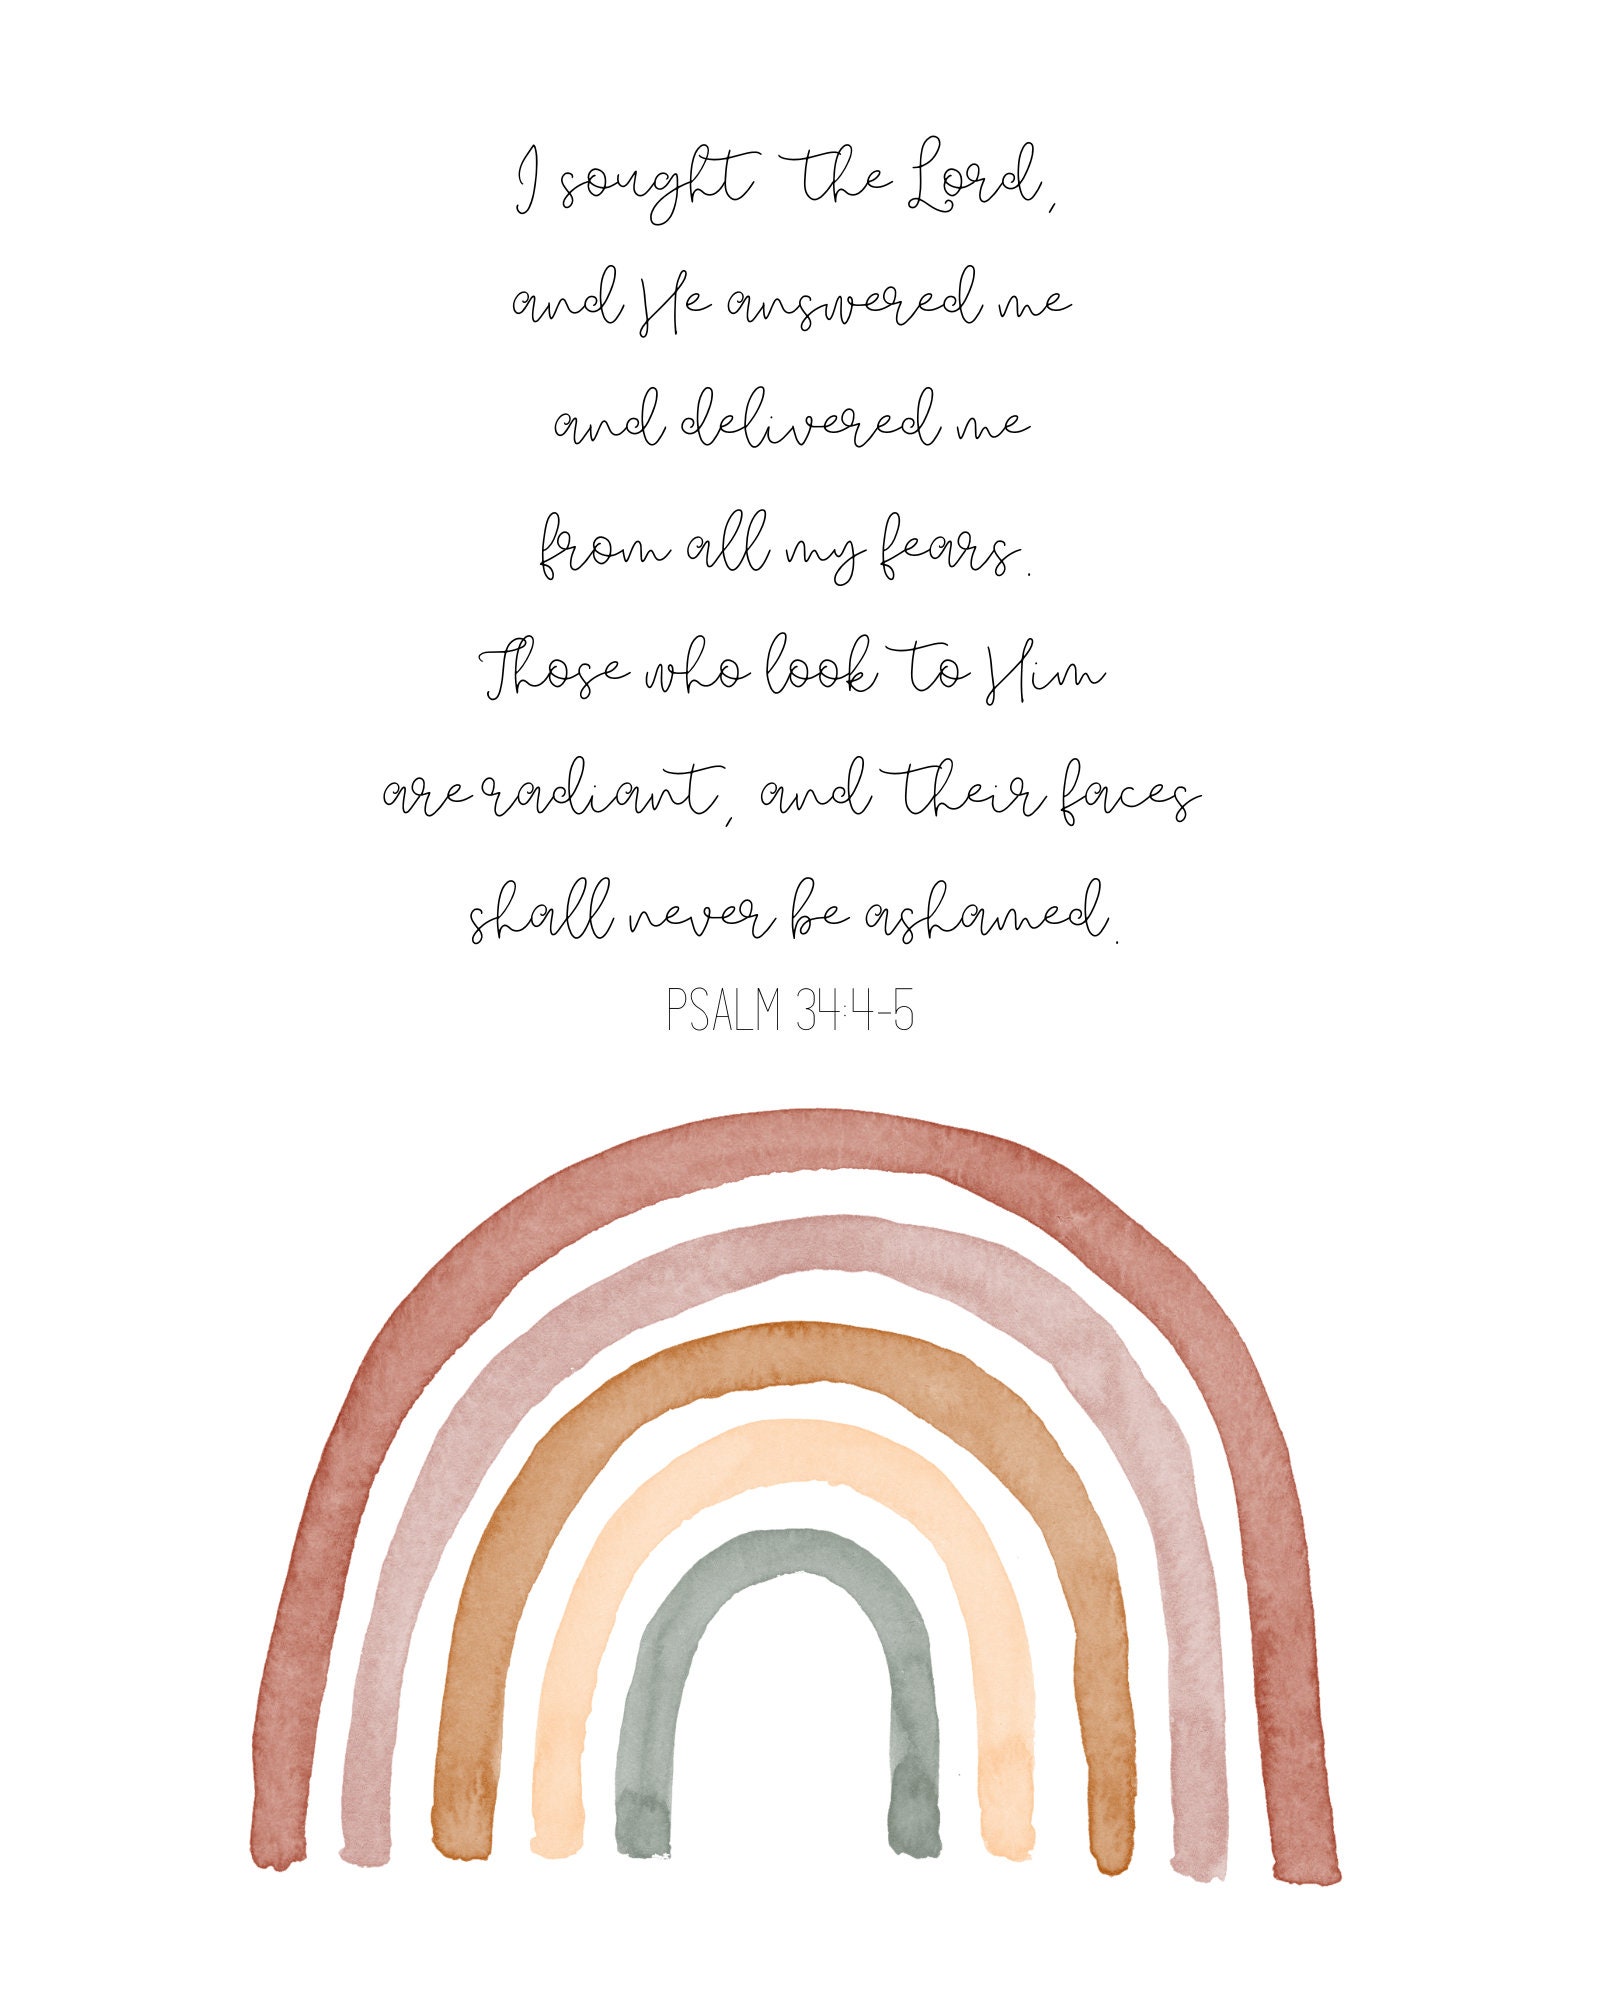 I sought the Lord,
and He answered me
and delivered me
from all my fears.
Those who look to Him
are radiant, and their faces
shall never be ashamed.
PSALM 34:4-5